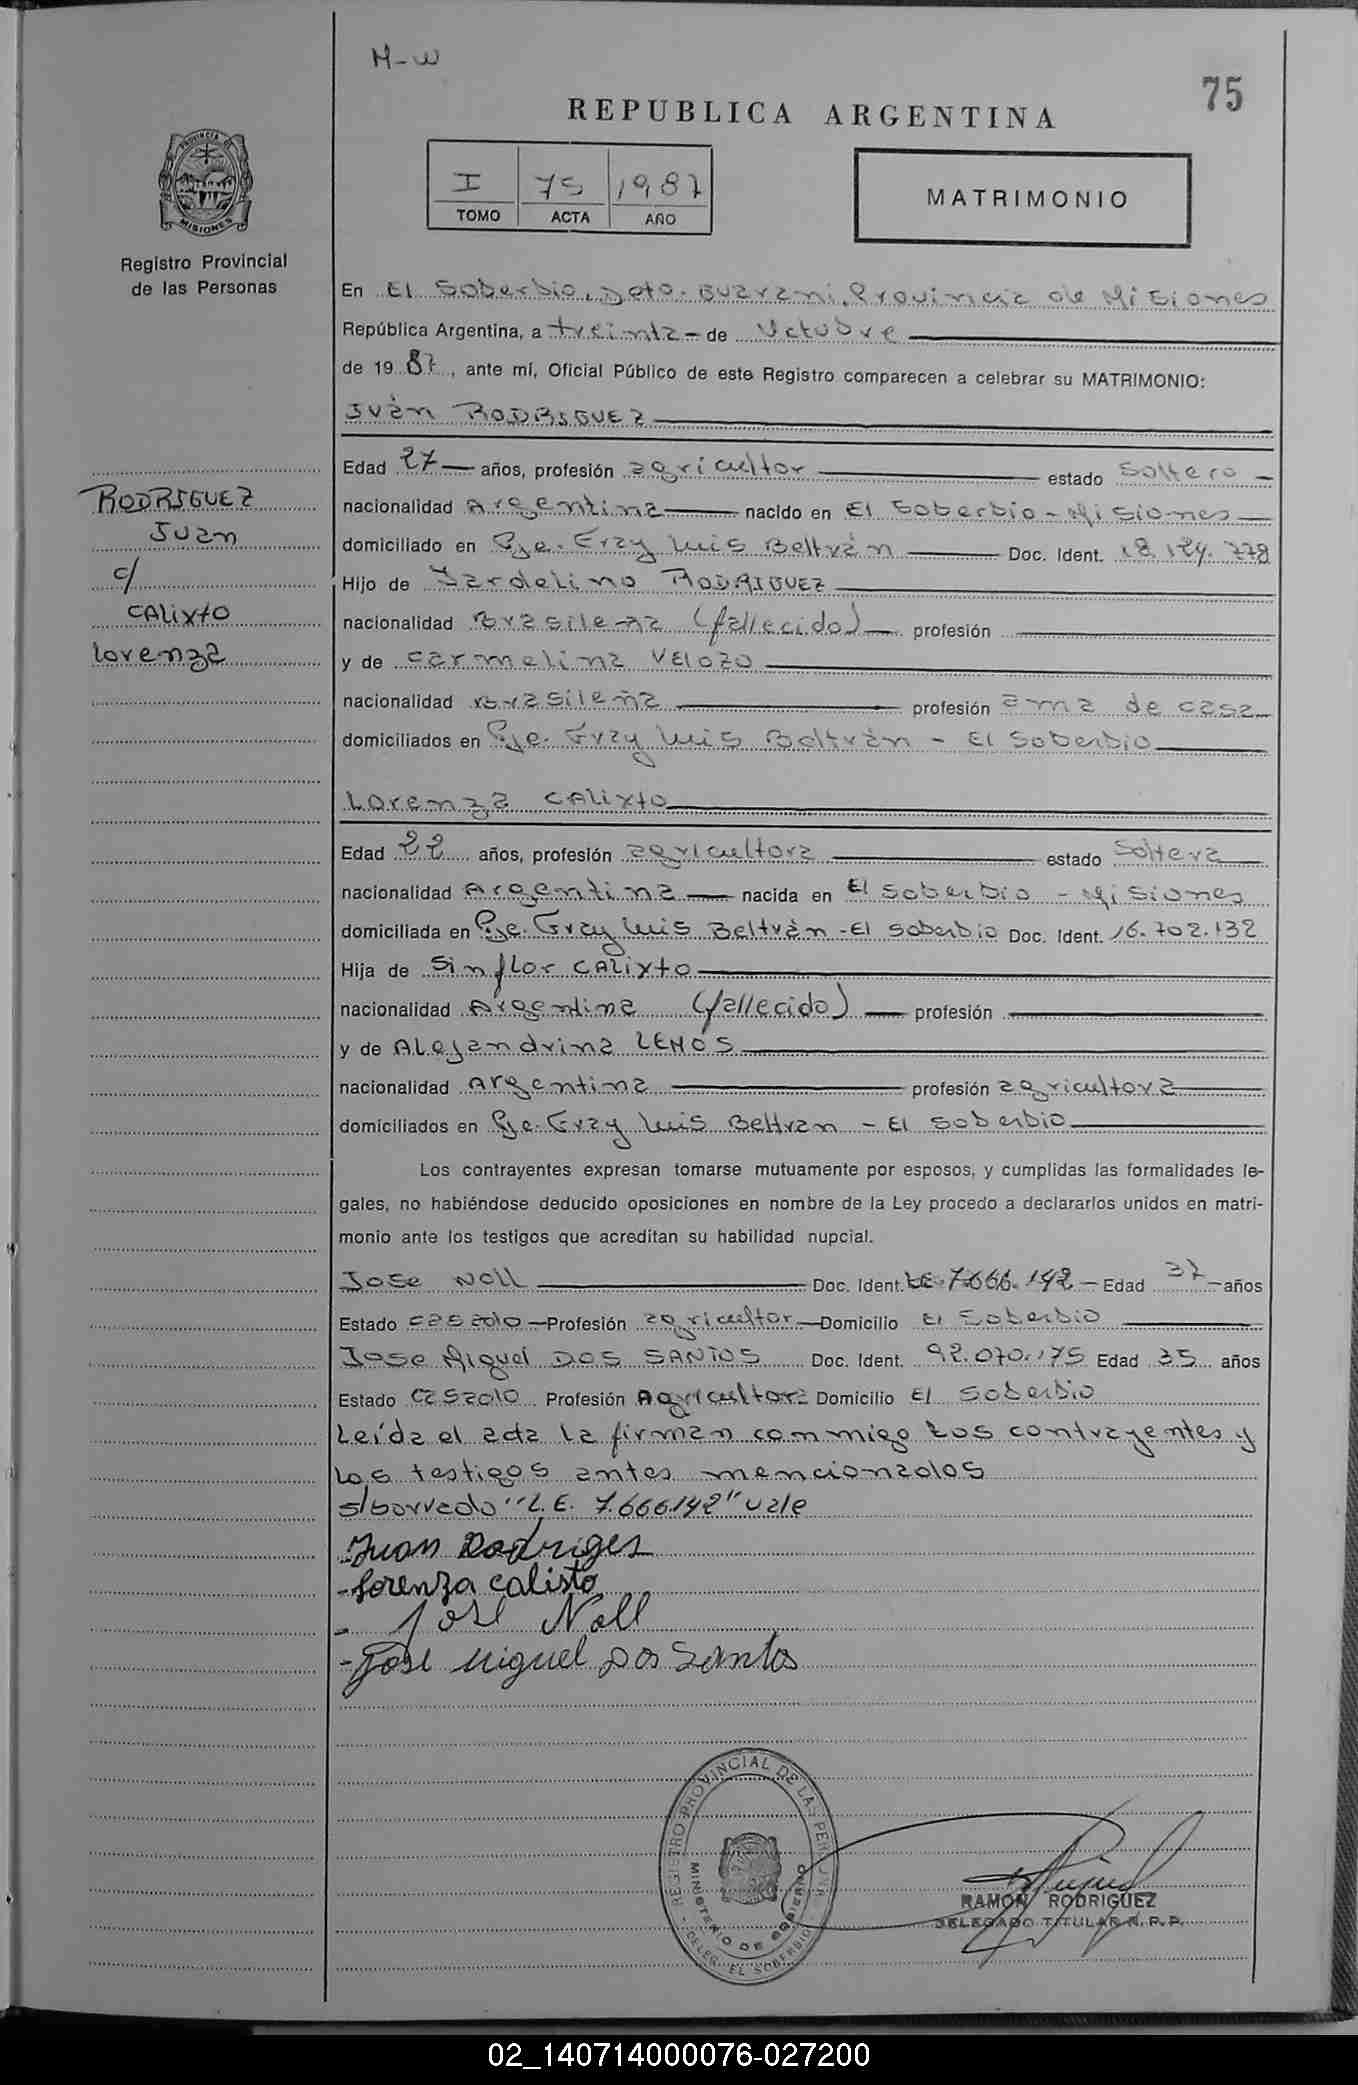 M-W
75
REPUBLICA ARGENTINA
I 75 1987
TOMO ACTA AÑO
MATRIMONIO
PROVINCIA DE
MISIONES
Registro Provincial
de las Personas
En El Soberbio, Dpto. Guarani, Provincia de Misiones
República Argentina, a treinta - de Octubre
de 19 87, ante mí, Oficial Público de este Registro comparecen a celebrar su MATRIMONIO:
Juàn RODRIGUEZ
Edad 27 — años, profesión agricultor estado Soltero -
nacionalidad Argentina nacido en El Soberbio - Misiones
domiciliado en Pje. Fray Luis Beltràn Doc. Ident. 18.124.778
Hijo de Jardelino RODRIGUEZ
nacionalidad Brasileña (fallecido) profesión
y de Carmelina VELOZO
nacionalidad brasileña profesión ama de casa
domiciliados en Pje. Fray Luis Beltràn - El Soberbio
RODRIGUEZ
Juan
c/
CALixto
Lorenza
Lorenza CALixto
Edad 22 años, profesión agricultora estado Soltera
nacionalidad Argentina nacida en El Soberbio - Misiones
domiciliada en Pje. Fray Luis Beltràn - El Soberbio Doc. Ident. 16.702.132
Hija de Sinflor CALixto
nacionalidad Argentina (fallecido) profesión
y de Alejandrina LEMOS
nacionalidad Argentina profesión agricultora
domiciliados en Pje. Fray Luis Beltran - El Soberbio
Los contrayentes expresan tomarse mutuamente por esposos, y cumplidas las formalidades le-
gales, no habiéndose deducido oposiciones en nombre de la Ley procedo a declararlos unidos en matri-
monio ante los testigos que acreditan su habilidad nupcial.
Jose NOll Doc. Ident. LE. 7.666.142 - Edad 37 - años
Estado casado - Profesión agricultor - Domicilio El Soberbio
Jose Miguel DOS SANTOS Doc. Ident. 92.070.175 Edad 35 años
Estado casado Profesión Agricultor Domicilio El Soberbio
Leída el acta la firman conmigo los contrayentes y
los testigos antes mencionados
s/borrado "L.E. 7.666142" vale
Juan Rodriges
- Lorenza calisto
- José Noll
- José Miguel Dos Santos
REGISTRO PROVINCIAL DE LAS PERSONAS
MINISTERIO DE GOBIERNO
DELEG. EL SOBERBIO
RAMON RODRIGUEZ
DELEGADO TITULAR R.P.P.
02_140714000076-027200